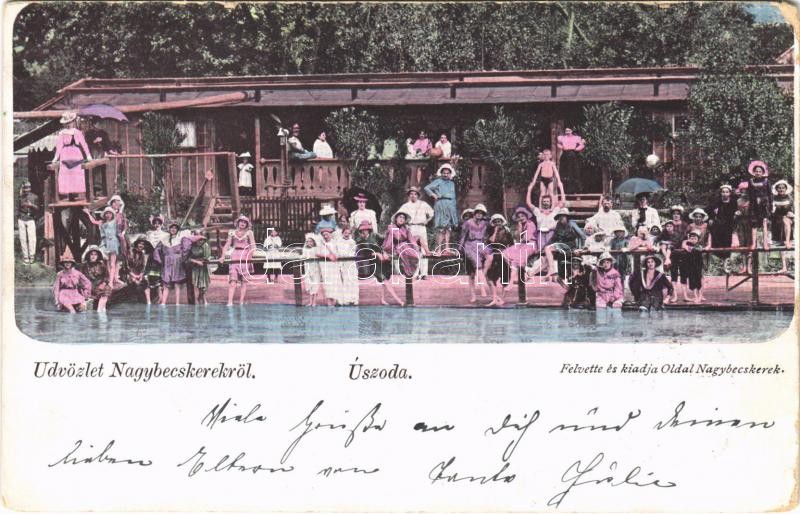 darabanth
Udvözlet Nagybecskerekröl.
Úszoda.
Felvette és kiadja Oldal Nagybecskerek.
Viele Grüße an Dich und Deinen
lieben Eltern von Tante Júlie